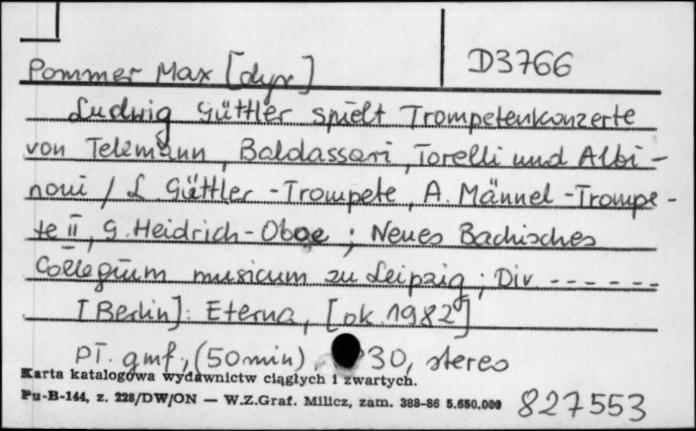 Pommer Max [dyr]
D3766
Ludwig Güttler spielt Trompetenkonzerte
von Telemann, Baldassari, Torelli und Albi-
noni / L. Güttler - Trompete, A. Männel - Trompe-
te II, G. Heidrich - Oboe ; Neues Bachisches
Collegium musicum zu Leipzig ; Div. ------
[Berlin]: Eterna, [ok. 1982]
pł. gmf., (50 min), 30, stereo
Karta katalogowa wydawnictw ciągłych i zwartych.
Pu-B-144, z. 228/DW/ON — W.Z.Graf. Milicz, zam. 388-86 5.650.000
827553